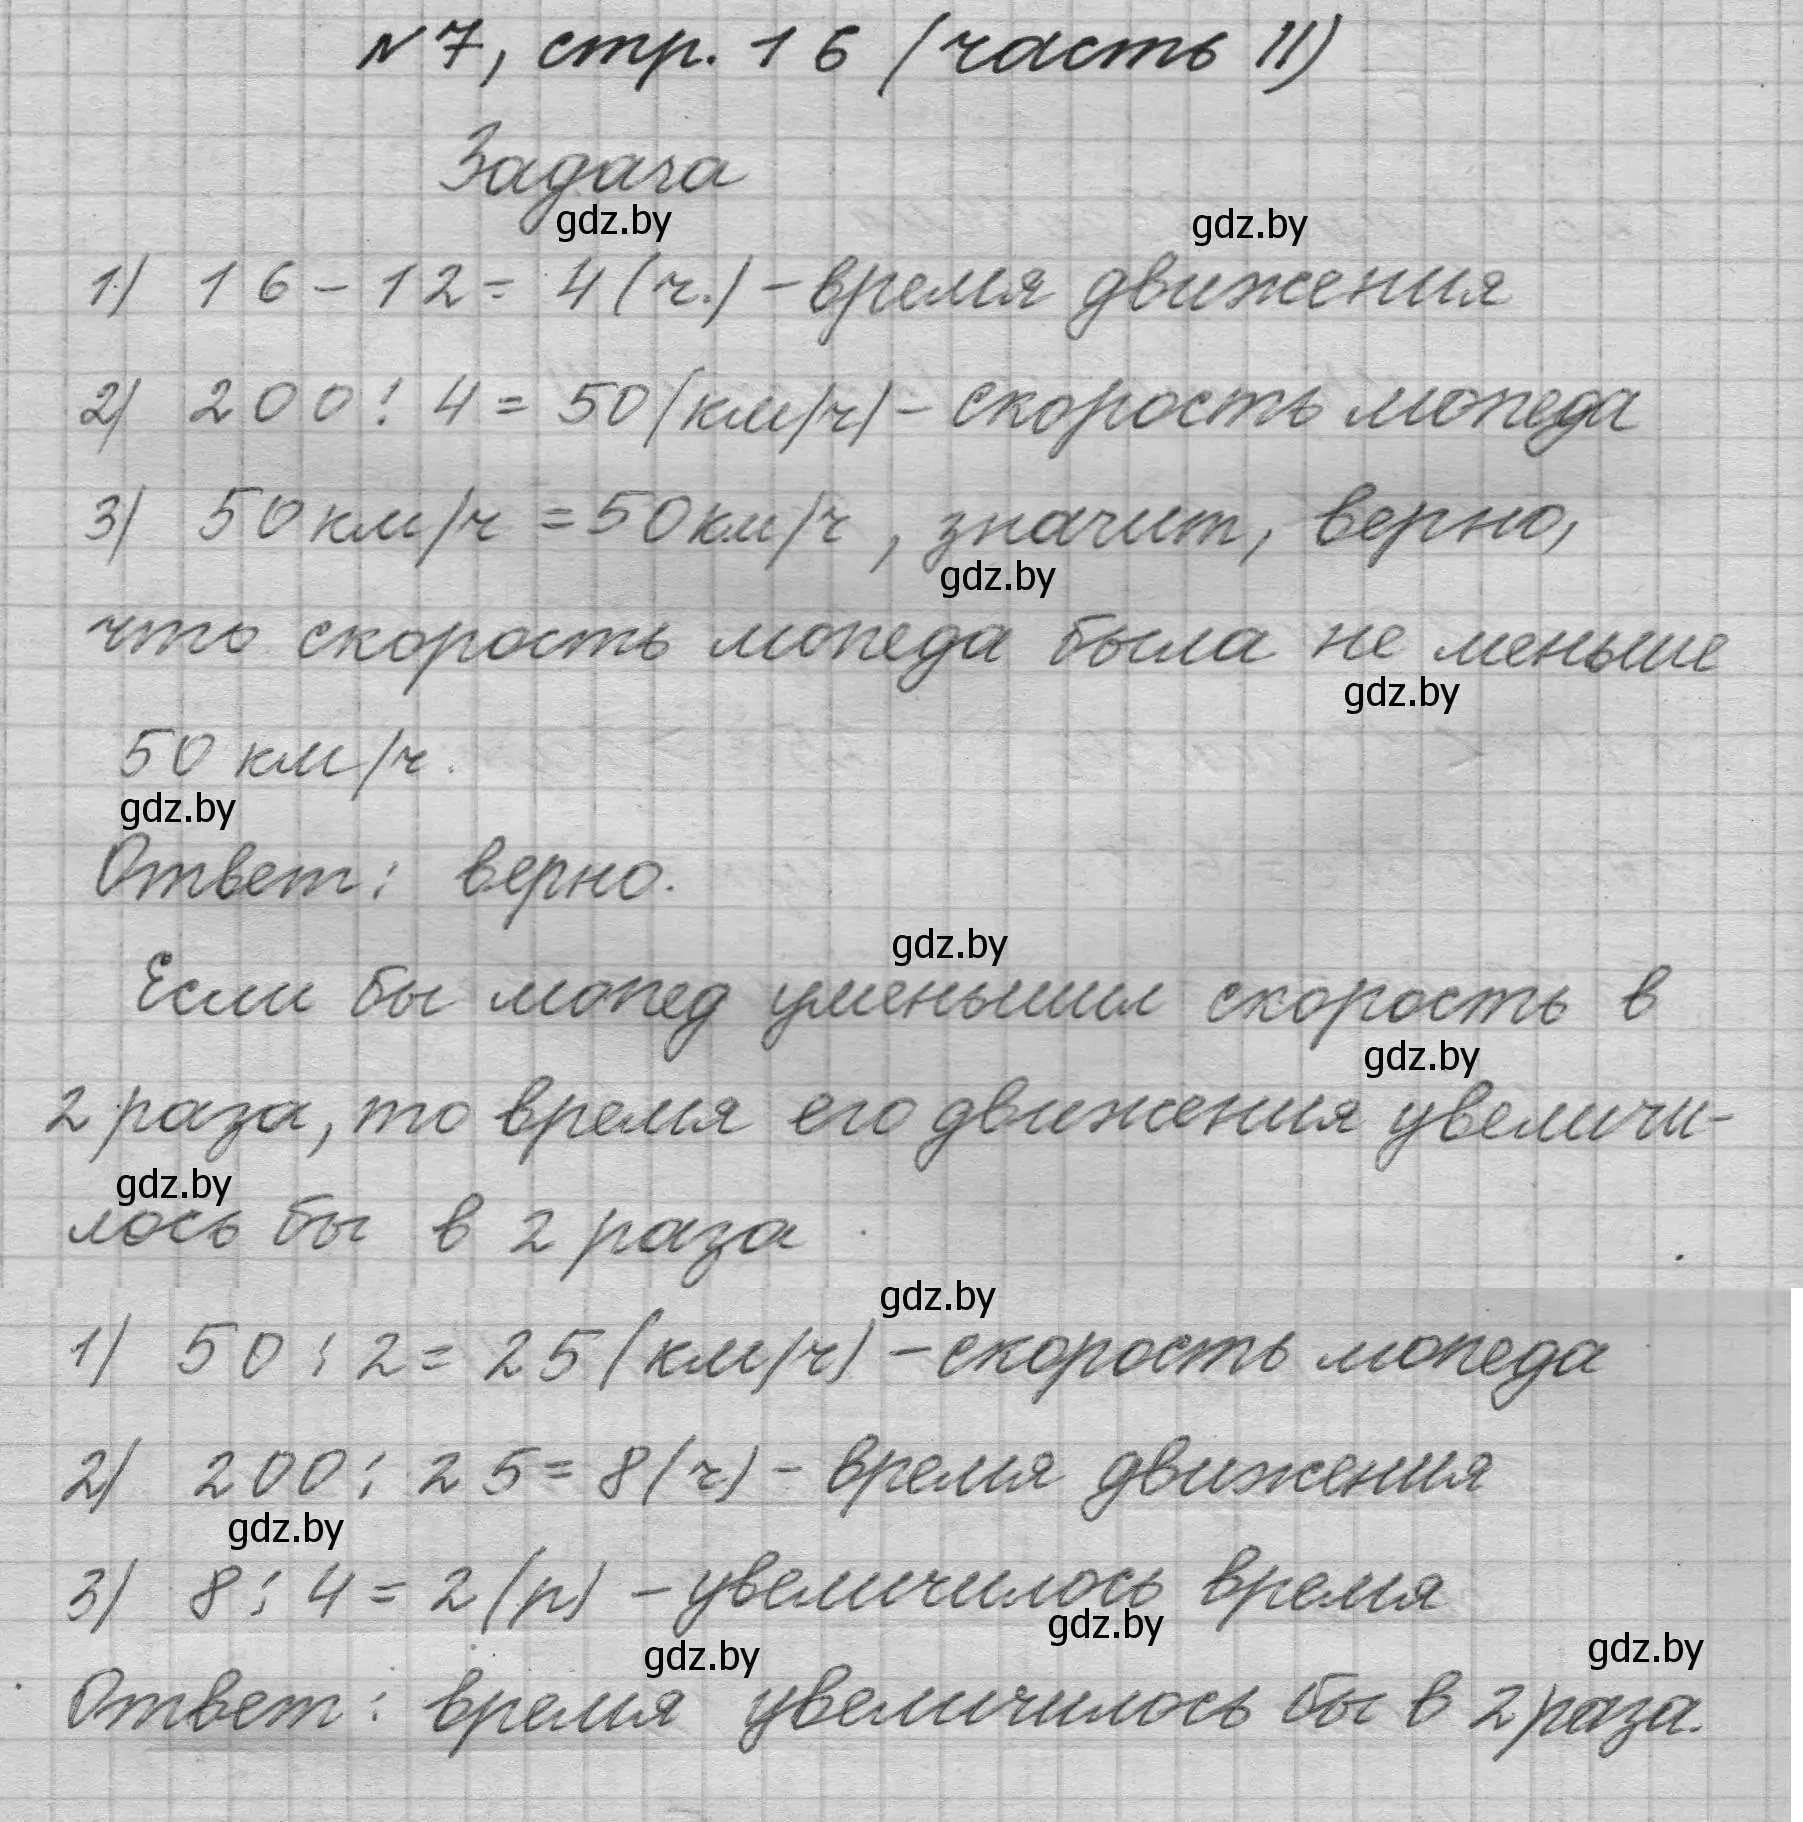 №7, стр. 16 (часть II)
Задача
gdz.by gdz.by
1) 16 - 12 = 4 (ч.) - время движения
2) 200 : 4 = 50 (км/ч) - скорость мопеда
3) 50 км/ч = 50 км/ч, значит, верно,
gdz.by
что скорость мопеда была не меньше
gdz.by
50 км/ч.
gdz.by
Ответ: верно.
gdz.by
Если бы мопед уменьшил скорость в
gdz.by
2 раза, то время его движения увеличи-
gdz.by
лось бы в 2 раза
gdz.by
1) 50 : 2 = 25 (км/ч) - скорость мопеда
2) 200 : 25 = 8 (ч) - время движения
gdz.by
3) 8 : 4 = 2 (р) - увеличилось время
gdz.by gdz.by gdz.by
Ответ: время увеличилось бы в 2 раза.